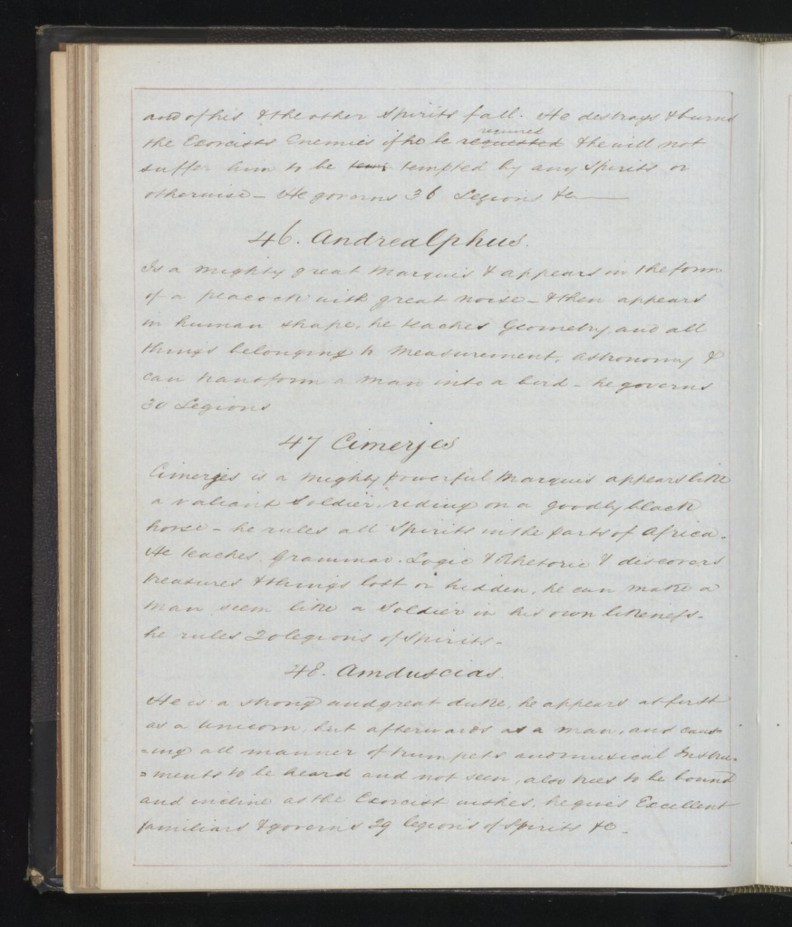 and of his & the other Spirits fall. He destroys & burns
the Exorcists Enemies if he be requested required & he will not
suffer him to be tem tempted by any Spirits or
otherwise – He governs 36 Legions &c
46. Andrealphus.
Is a mighty great Marquis & appears in the form
of a peacock with great noise – & then appears
in human shape, he teaches Geometry, and all
things belonging to Measurement, astronomy &
can transform a man into a bird – he governs
30 Legions
47 Cimerjes
Cimerjes is a mighty powerful Marquis appears like
a valiant Soldier, riding on a goodly black
horse – he rules all Spirits in the parts of Africa.
He teaches Grammar, Logic & Rhetoric & discovers
treasures & things lost or hidden, he can make a
man seem like a Soldier in his own likeness.
he rules 20 legions of Spirits.
48. Amduscias.
He is a strong and great duke, he appears at first
as a Unicorn, but afterwards as a man, and caus
=ing all manner of trumpets and musical Instru=
=ments to be heard and not seen, also trees to be bound
and incline as the Exorcist wishes, he gives Excellent
familiars & governs 29 legions of Spirits &c.